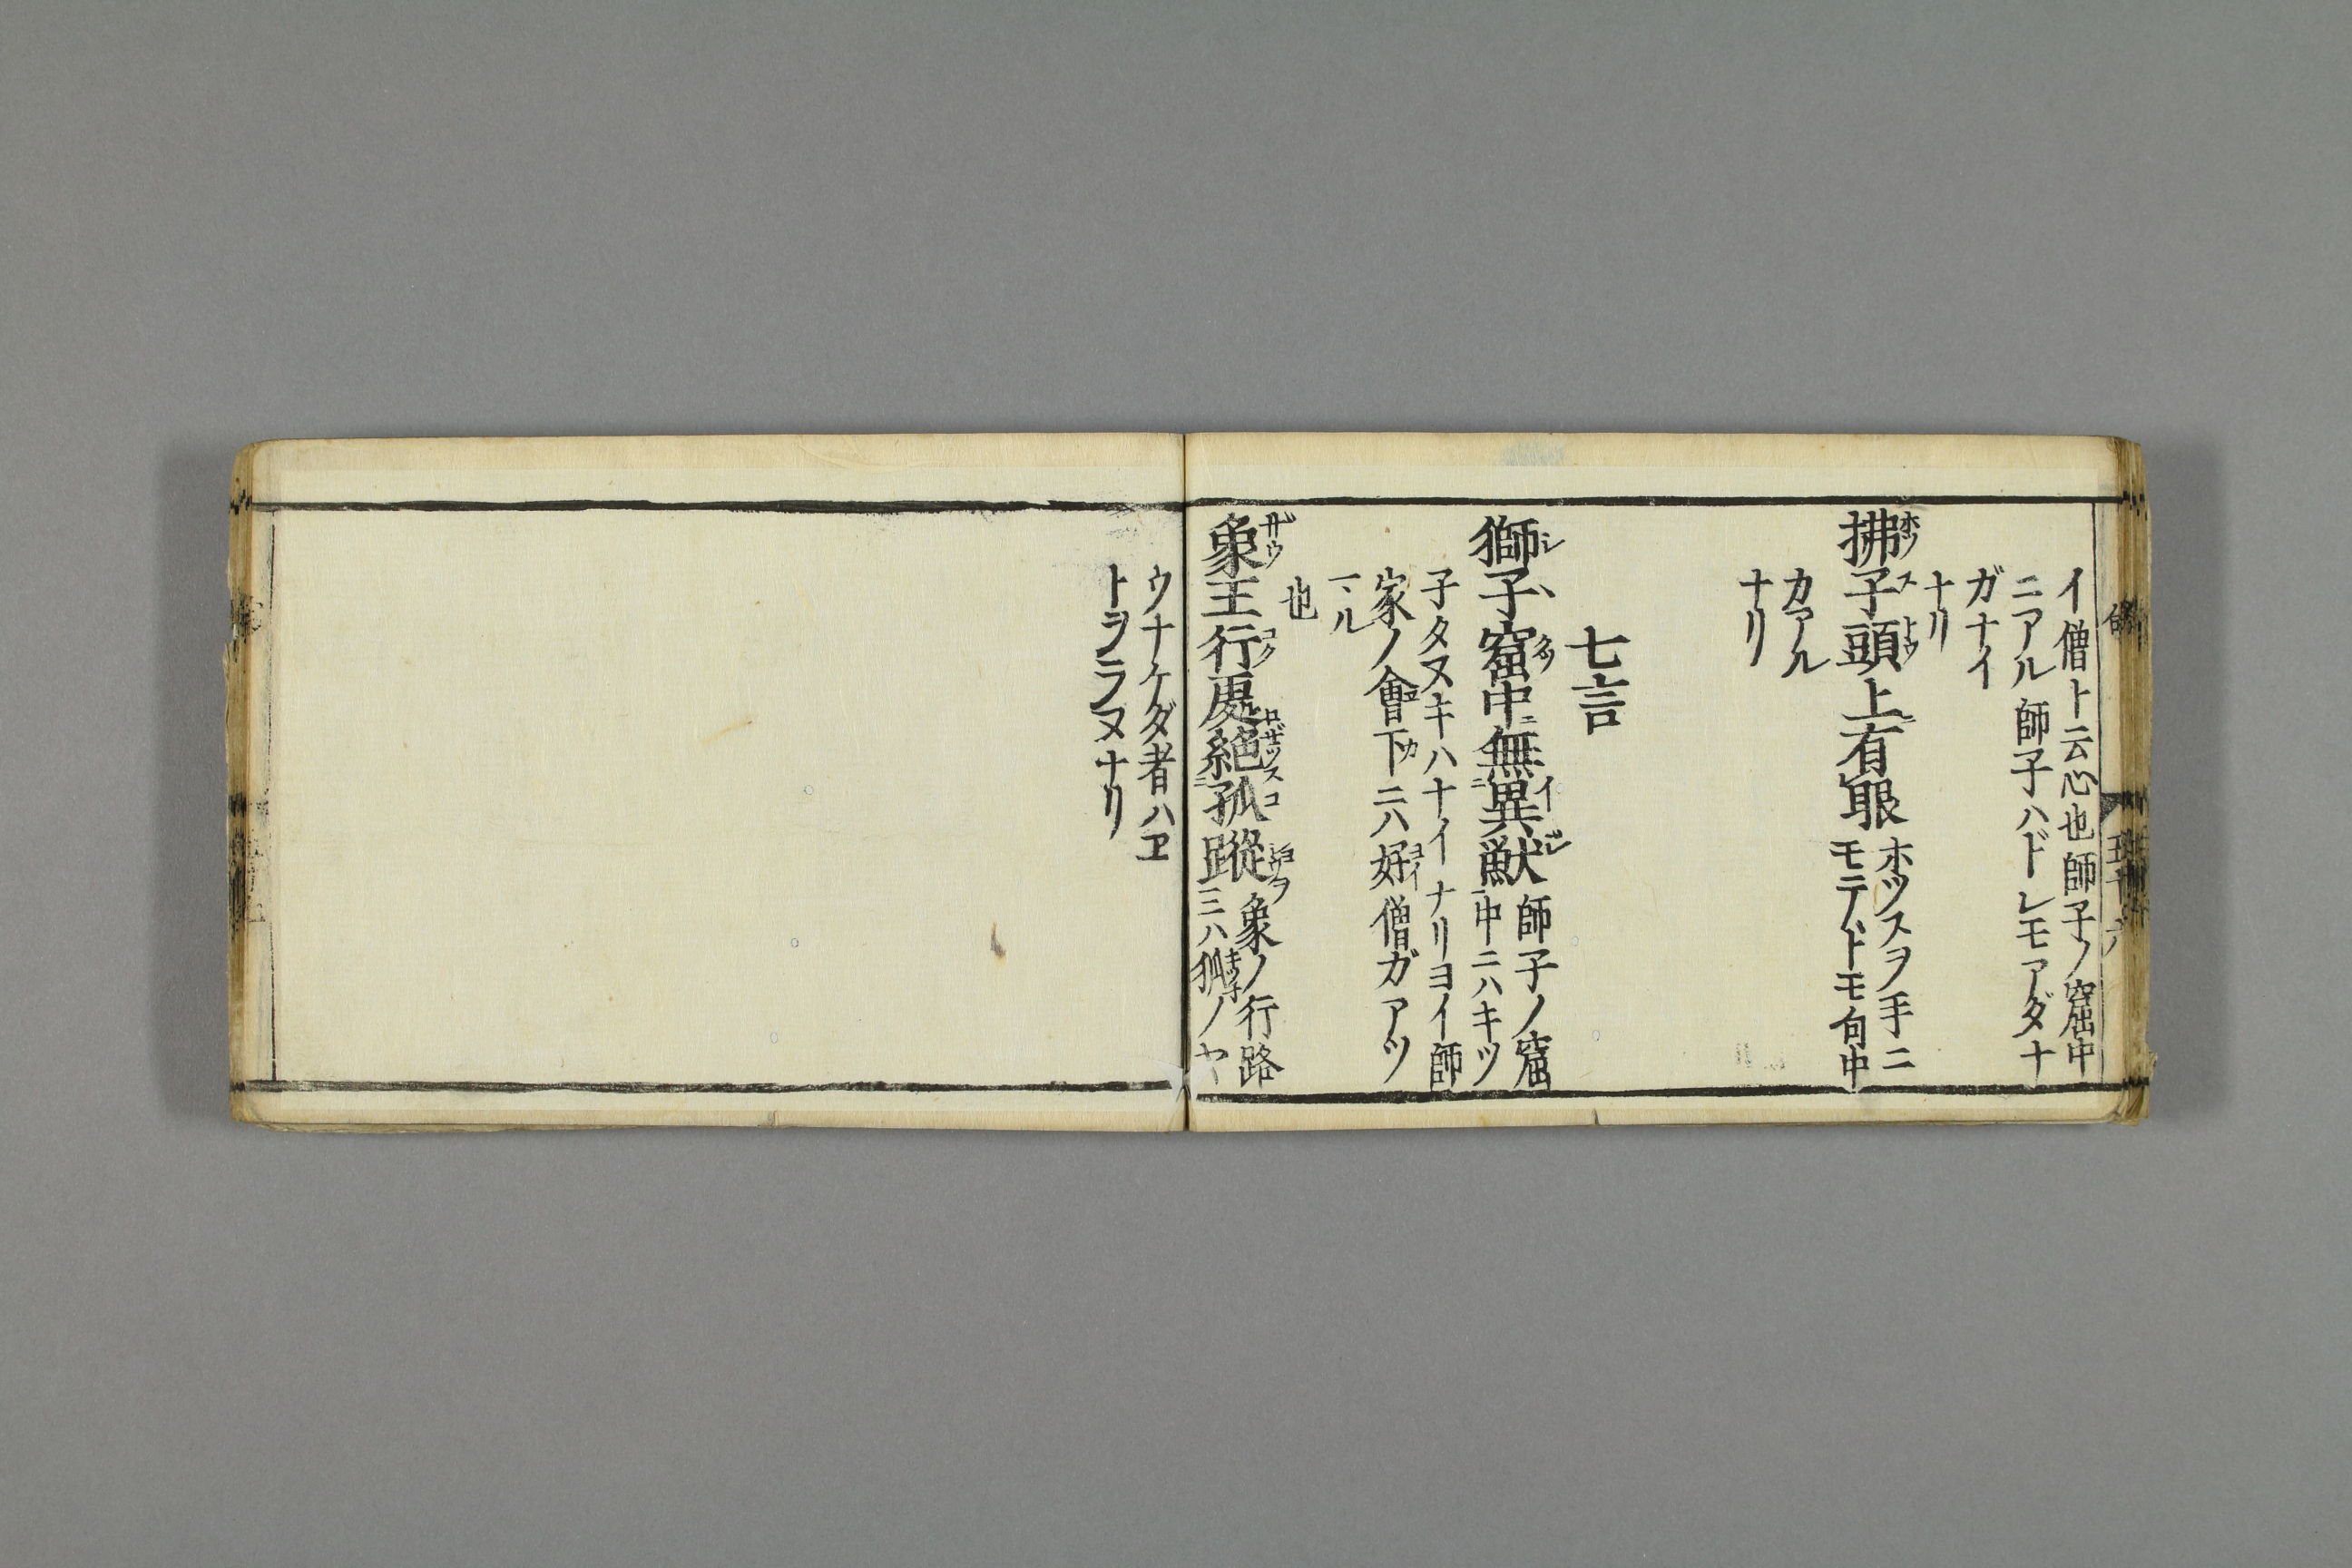 イ僧ト云心也師子ノ窟中
ニアル師子ハドレモアダナ
ガナイ
ナリ
拂子頭上有眼
ホツスヲ手ニ
モテドモ句中
カアル
ナリ
七言
獅子窟中無異獣
師子ノ窟
中ニハキツ
子タヌキハナイナリヨイ師
家ノ會下ニハ好僧ガアツ
也
象王行處絶孤蹤
象ノ行路
ニハ狐ノヤ
ウナケダ者ハヱ
トヲラヌナリ